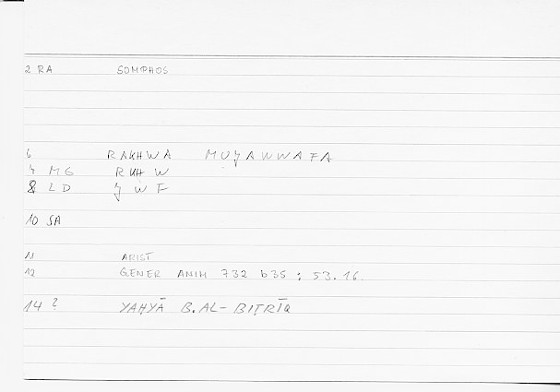 2 RA SOMPHOS
6 RAKHWA MUJAWWAFA
4 MG RUH W
8 LD J W F
10 SA
11 ARIST
12 GENER ANIM 732 b35 ; 53.16
14 ? YAḤYĀ B. AL-BIṬRĪQ